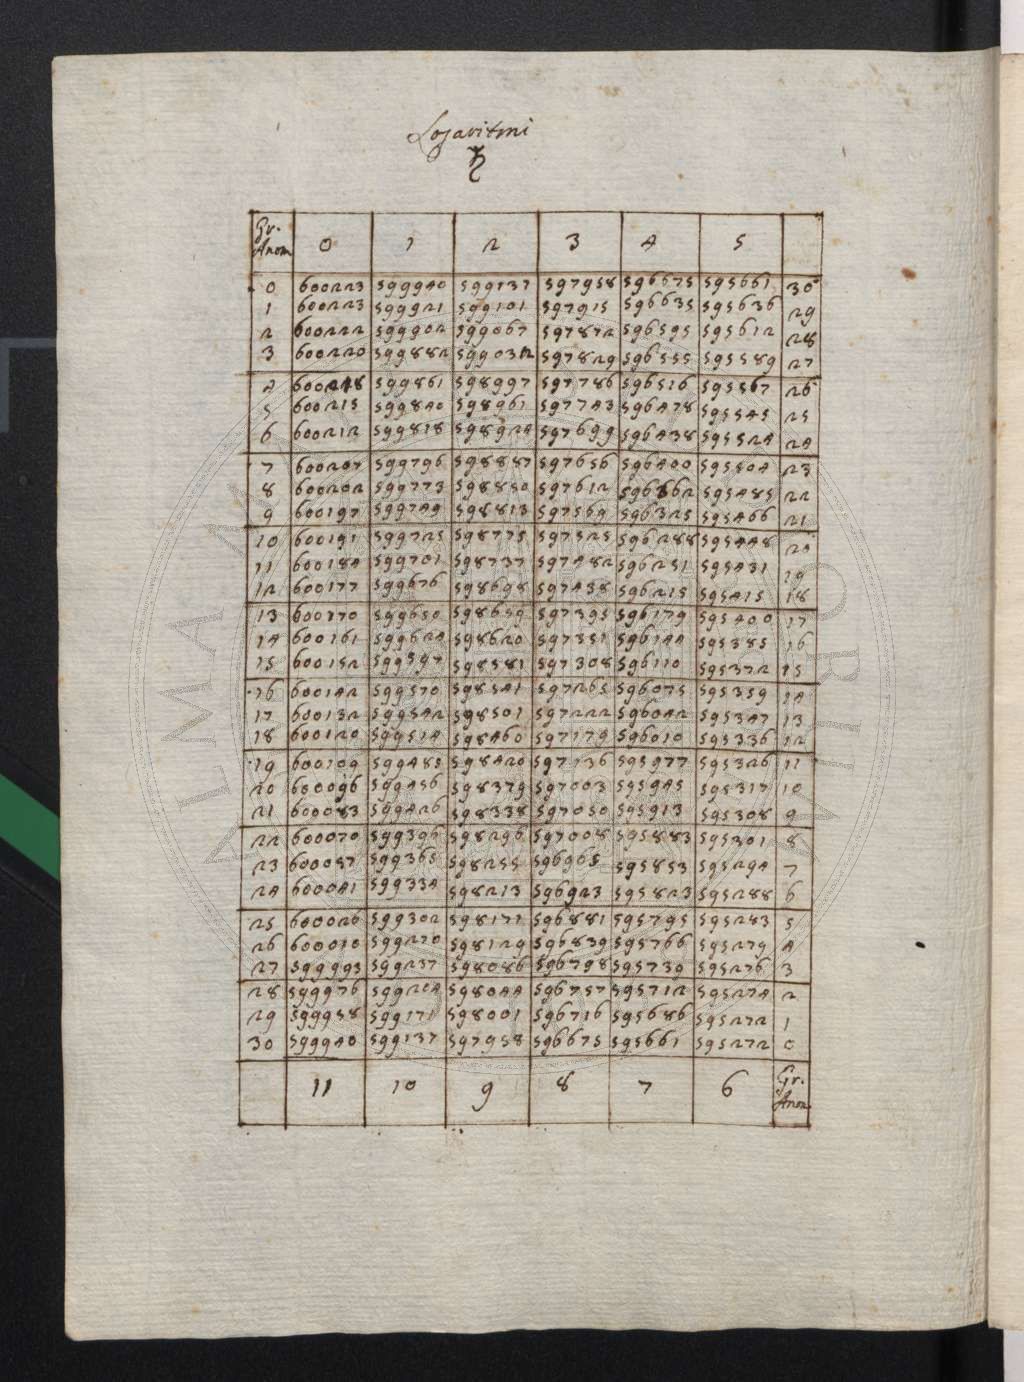 Logaritmi
♄
Gr. Anom 0 1 2 3 4 5
0 600223 599940 599137 597958 596675 595661 30
1 600223 599921 599101 597915 596635 595636 29
2 600222 599902 599067 597872 596595 595612 28
3 600220 599882 599032 597829 596555 595589 27
4 600218 599861 598997 597786 596516 595567 26
5 600215 599840 598961 597743 596478 595545 25
6 600212 599818 598924 597699 596438 595524 24
7 600207 599796 598887 597656 596400 595504 23
8 600202 599773 598850 597612 596362 595485 22
9 600197 599749 598813 597569 596325 595466 21
10 600191 599725 598775 597525 596288 595448 20
11 600184 599701 598737 597482 596251 595431 19
12 600177 599676 598698 597438 596215 595415 18
13 600170 599650 598659 597395 596179 595400 17
14 600161 599624 598620 597351 596144 595385 16
15 600152 599597 598581 597308 596110 595372 15
16 600142 599570 598541 597265 596075 595359 14
17 600132 599542 598501 597222 596042 595347 13
18 600120 599514 598460 597179 596010 595336 12
19 600109 599485 598420 597136 595977 595326 11
20 600096 599456 598379 597003 595945 595317 10
21 600083 599426 598338 597050 595913 595308 9
22 600070 599396 598296 597008 595883 595301 8
23 600057 599365 598255 596965 595853 595294 7
24 600041 599334 598213 596923 595823 595288 6
25 600026 599302 598171 596881 595795 595283 5
26 600010 599270 598129 596839 595766 595279 4
27 599993 599237 598086 596798 595739 595276 3
28 599976 599204 598044 596757 595712 595274 2
29 599958 599171 598001 596716 595686 595272 1
30 599940 599137 597958 596675 595661 595272 0
11 10 9 8 7 6 Gr. Anom.